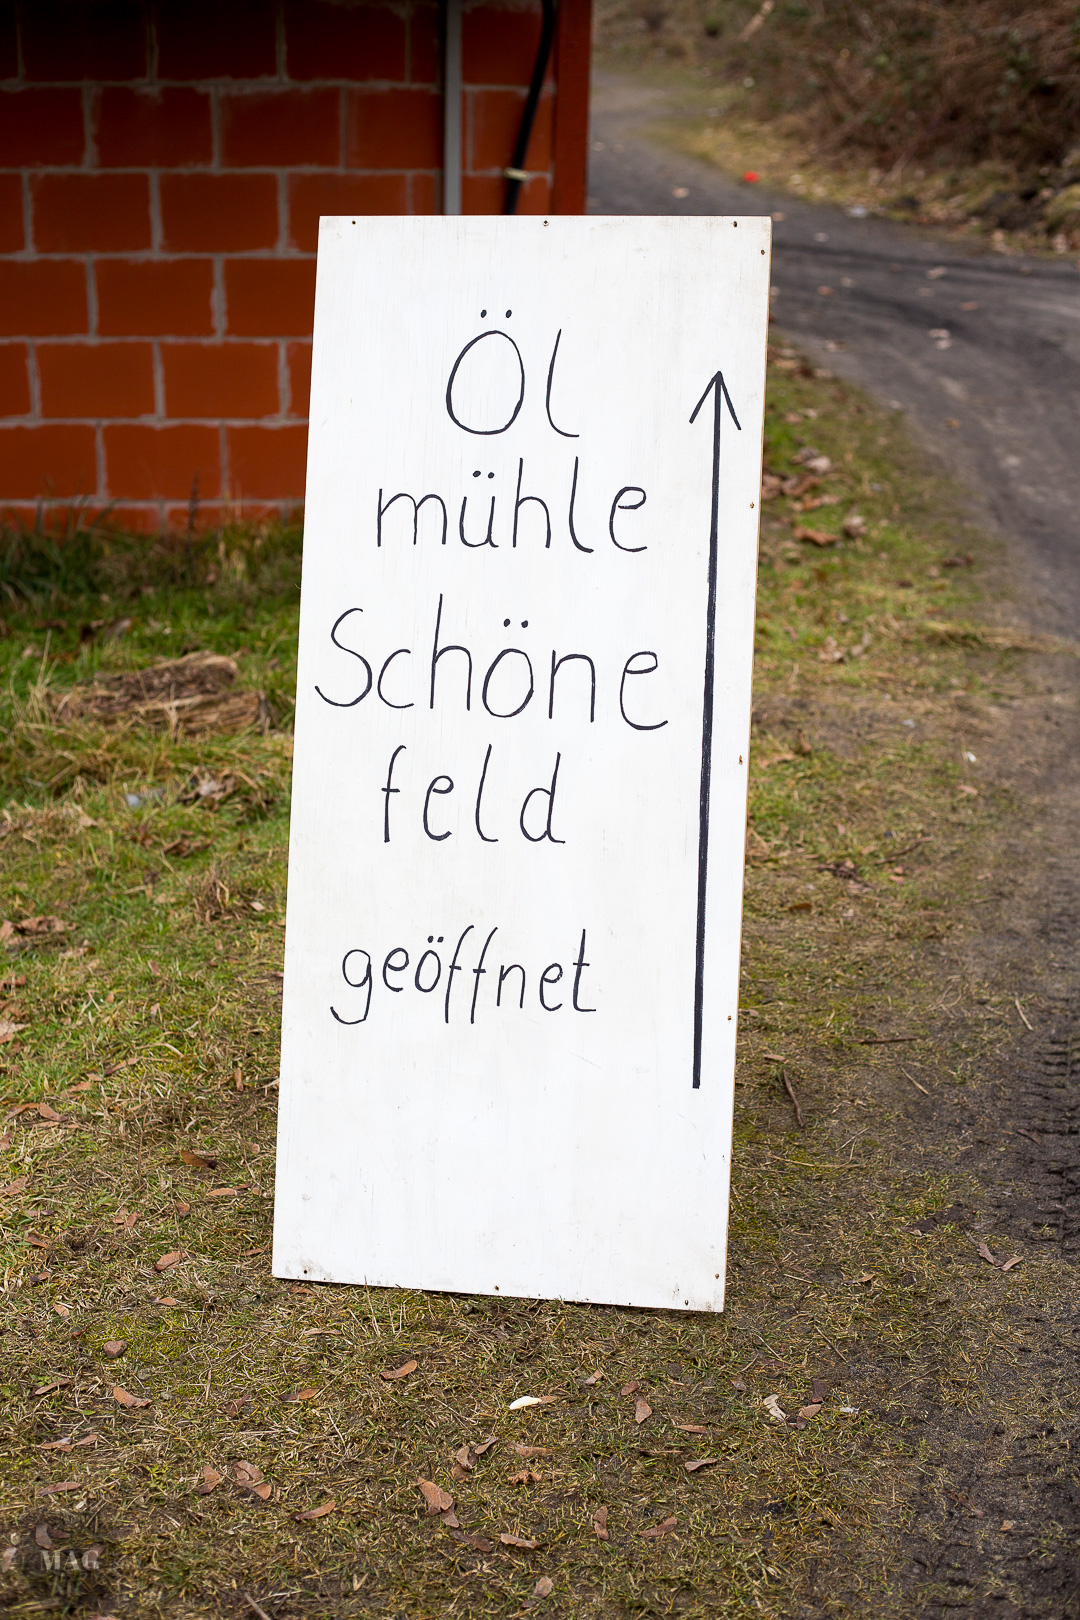 Öl
mühle
Schöne
feld
geöffnet
MAG